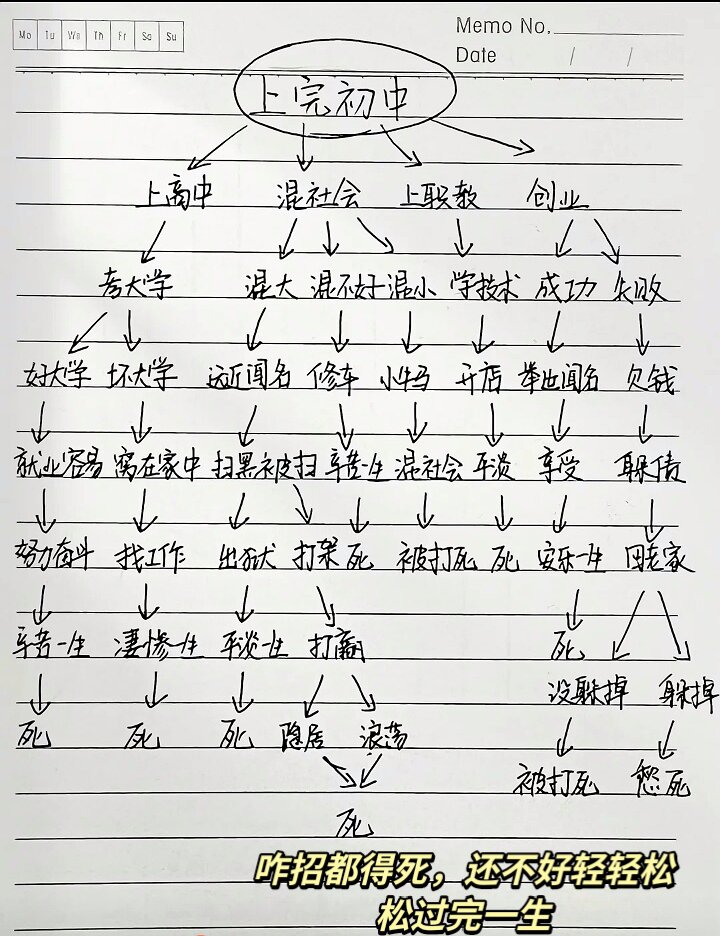 Mo Tu We Th Fr Sa Su
Memo No.
Date / /
上完初中
上高中 混社会 上职教 创业
考大学 混大 混不好 混小 学技术 成功 失败
好大学 坏大学 远近闻名 修车 小牛马 开店 举世闻名 欠钱
就业容易 窝在家中 扫黑被扫 辛苦一生 混社会 平淡 享受 躲债
努力奋斗 找工作 出狱 打架 死 被打死 死 安乐一生 回老家
辛苦一生 凄惨一生 平淡一生 打赢 死
没躲掉 躲掉
死 死 死 隐居 浪荡
被打死 愁死
死
咋招都得死，还不好轻轻松
松过完一生